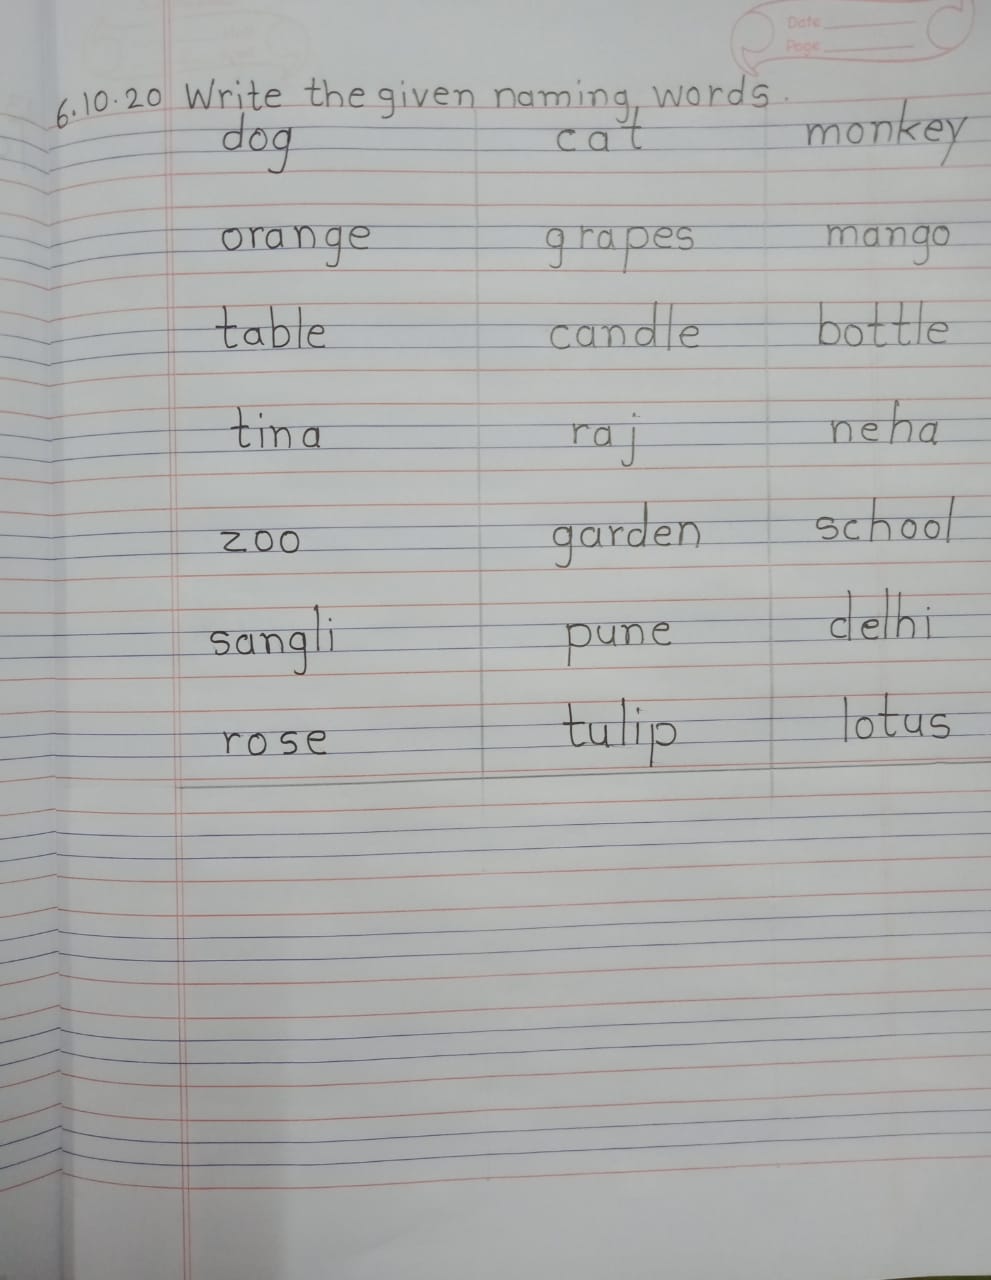 Date
Page
6.10.20 Write the given naming words.
dog cat monkey
orange grapes mango
table candle bottle
tina raj neha
zoo garden school
sangli pune delhi
rose tulip lotus